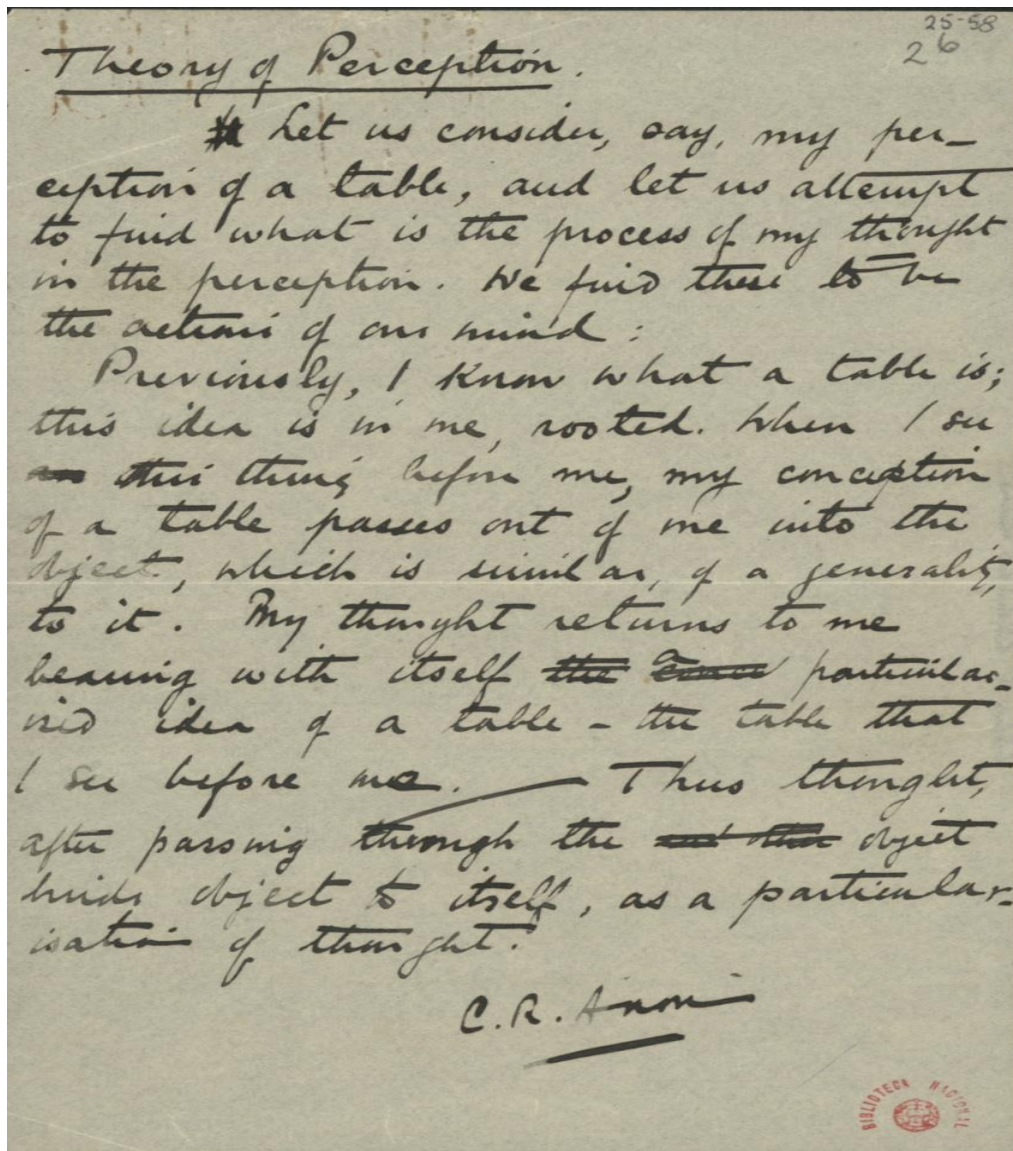 25-58
26
Theory of Perception.
Let us consider, say, my per-
ception of a table, and let us attempt
to find what is the process of my thought
in the perception. We find these to be
the actions of our mind:
Previously, I know what a table is;
this idea is in me, rooted. When I see
this thing before me, my conception
of a table passes out of me into the
object, which is similar, of a generality,
to it. My thought returns to me
bearing with itself particular-
ised idea of a table - the table that
I see before me. Thus thought,
after passing through the object
binds object to itself, as a particular-
isation of thought.
C. R. Anon
BIBLIOTECA NACIONAL